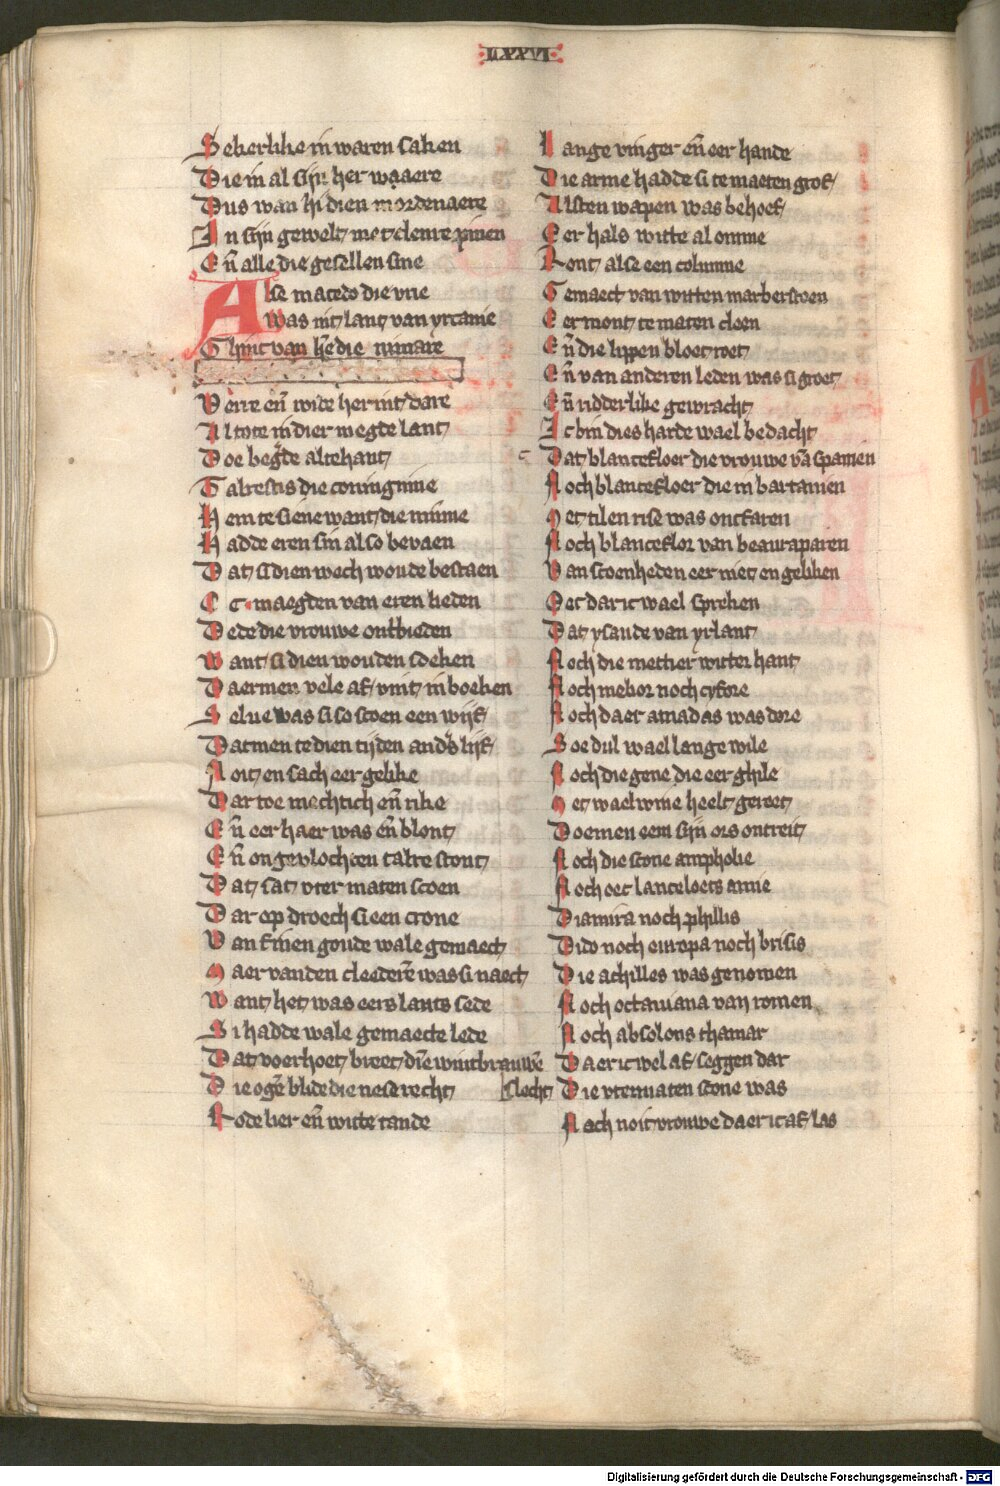 LXXVI
Sekerlike in waren saken
Die in al sijn her waaere
Dus wan hi dien mordenaere
In sijn gewelt met cleinre pinen
Eñ alle die gesellen sine
Alse macedo die vrie
Was int lant van yrcanie
Ghinc van hē die niemare
Verre eñ wide her int dare
Al tote in dier megde lant
Doe begde altehant
Talrestis die coninginne
Hem te siene want die minne
Hadde eren sin also bevaen
Dat si dien wech woude bestaen
CC maegden van eren lieden
Dede die vrouwe ontbieden
Want si dien wouden soeken
Daermen vele af vint in boeken
Selue was si so scoen een wijf
Datmen te dien tijden anders lijf
Noit en sach eer gelike
Dar toe mechtich eñ rike
Eñ eer haer was eñ blont
Eñ ongevlochten talre stont
Dat sat vter maten scoen
Dar op droech si een crone
Van finen goude wale gemaect
Maer vanden cleederē was si naect
Want het was eers lants sede
Si hadde wale gemaecte lede
Dat voerhoet breet dīe wintbrauwē
Die ogē blide die nese recht slecht
Rode lier eñ witte tande
Lange vinger eñ eer hande
Die arme hadde si te maeten grof
Alsten wapen was behoef
Eer hals witte al omme
Ront alse een columne
Gemaect van witten marberstoen
Eer mont te maten cleen
Eñ die lippen bloet roet
Eñ van anderen leden was si groet
Eñ ridderlike gewracht
Ic bin dies harde wael bedacht
Dat blancefloer die vrouwe vā spanien
Noch blancefloer die in bartanien
Met tilen rise was ontfaren
Noch blanceflor van beauraparen
Van scoenheden eer niet en geliken
Oec dar ic wael spreken
Dat ysaude van yrlant
Noch die metter witter hant
Noch melior noch cyfore
Noch daer amadas was dore
Soe dul wael lange wile
Noch die gene die eer ghile
Met waelwine heelt gereet
Doemen eem sijn ors ontreit
Noch die scone ampholie
Noch oec lanceloets amie
Diamira noch phillis
Dido noch europa noch brisis
Die achilles was genomen
Noch octauiana van romen
Noch absolons thamar
Daer ic wel af seggen dar
Die vtermaten scone was
Noch noit vrouwe daer ic af las
Digitalisierung gefördert durch die Deutsche Forschungsgemeinschaft - DFG